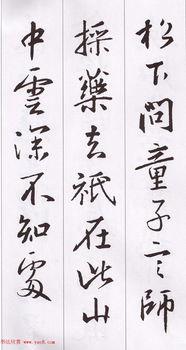 松下問童子言師
採藥去祇在此山
中雲深不知處
书法欣赏
www.yac8.com